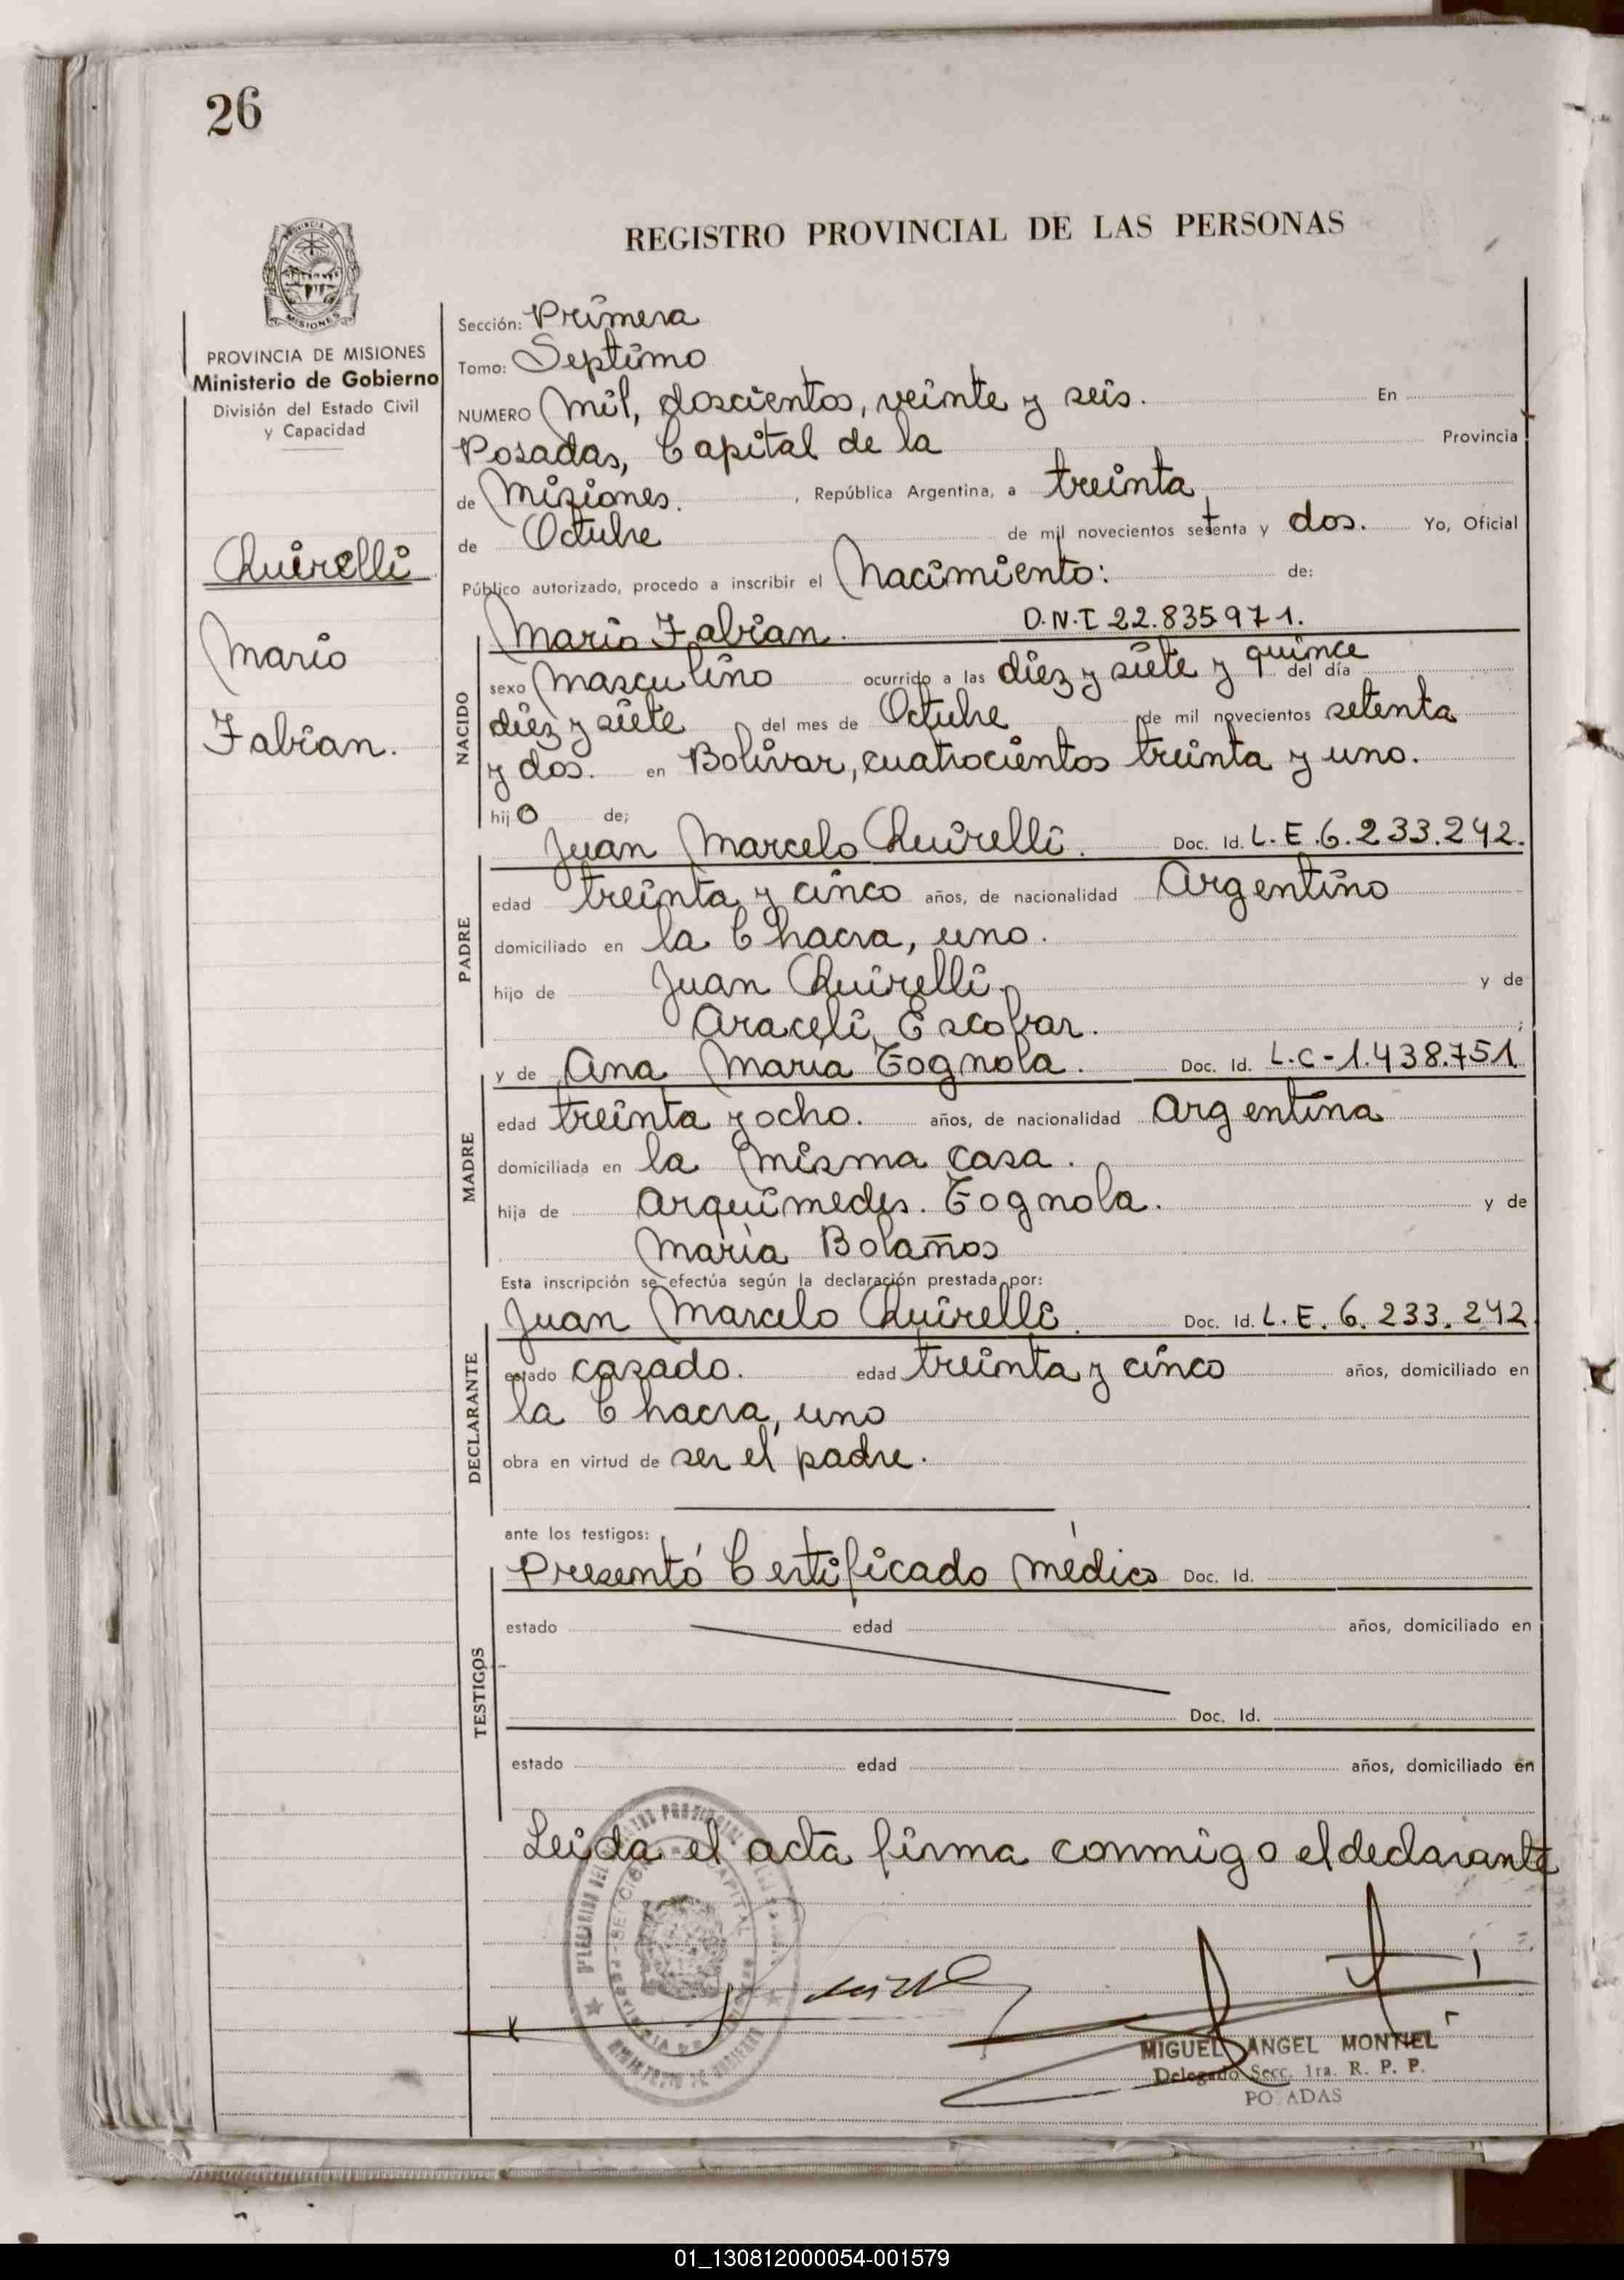 26
REGISTRO PROVINCIAL DE LAS PERSONAS
MISIONES
PROVINCIA DE MISIONES
Ministerio de Gobierno
División del Estado Civil
y Capacidad
Quirelli
Mario
Fabian.
Sección: Primera
Tomo: Septimo
NUMERO Mil, doscientos, veinte y seis. En
Posadas, Capital de la Provincia
de Misiones. , República Argentina, a treinta
de Octubre de mil novecientos setenta y dos. Yo, Oficial
Público autorizado, procedo a inscribir el Nacimiento: de:
NACIDO
Mario Fabian. D.N.I 22.835971.
sexo Masculino ocurrido a las diez y siete y quince del día
diez y siete del mes de Octubre de mil novecientos setenta
y dos. en Bolívar, cuatrocientos treinta y uno.
hijo de;
PADRE
Juan Marcelo Quirelli. Doc. Id. L.E.6.233.242.
edad treinta y cinco años, de nacionalidad Argentino
domiciliado en la Chacra, uno.
hijo de Juan Quirelli. y de
Araceli Escobar. ;
MADRE
y de Ana María Tognola. Doc. Id. L.C-1.438.751
edad treinta y ocho. años, de nacionalidad Argentina
domiciliada en la misma casa.
hija de Arquimedes. Tognola. y de
María Bolaños
Esta inscripción se efectúa según la declaración prestada por:
DECLARANTE
Juan Marcelo Quirelli. Doc. Id. L.E. 6. 233. 242
estado casado. edad treinta y cinco años, domiciliado en
la Chacra, uno
obra en virtud de ser el padre.
ante los testigos:
TESTIGOS
Presentó Certificado Médico Doc. Id.
estado edad años, domiciliado en
Doc. Id.
estado edad años, domiciliado en
Leida el acta firma conmigo el declarante
MIGUEL ANGEL MONTIEL
Delegado Secc. 1ra. R. P. P.
PO ADAS
01_130812000054-001579